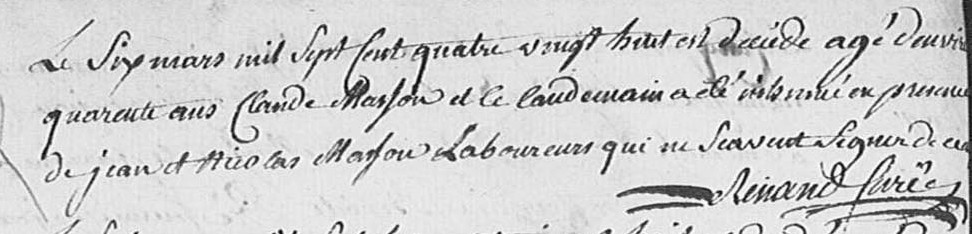 Le Six mars mil Sept Cent quatre vingt huit est décédé agé d'envir
quarente ans Claude Masson et le landemain a été inhumé en presence
de jean et Nicolas Masson Laboureurs qui ne Scavent Signer de ce
Renard Curé